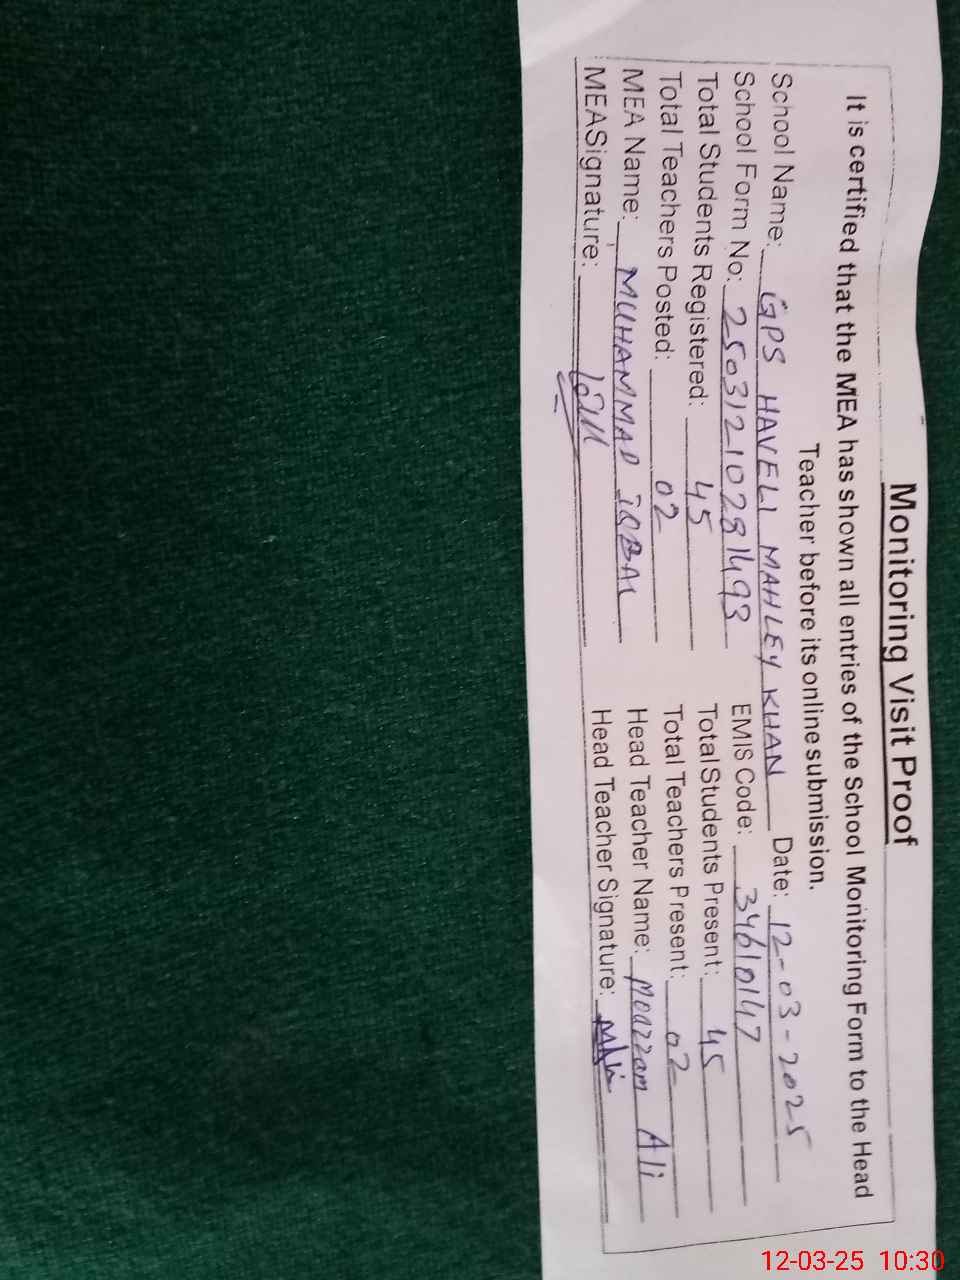 Monitoring Visit Proof
It is certified that the MEA has shown all entries of the School Monitoring Form to the Head
Teacher before its online submission.
School Name: GPS HAVELI MAHLEY KHAN Date: 12-03-2025
School Form No: 25031210281493 EMIS Code: 34610147
Total Students Registered: 45 Total Students Present: 45
Total Teachers Posted: 02 Total Teachers Present: 02
MEA Name: MUHAMMAD IQBAL Head Teacher Name: Moazzam Ali
MEASignature: Head Teacher Signature:
12-03-25 10:30